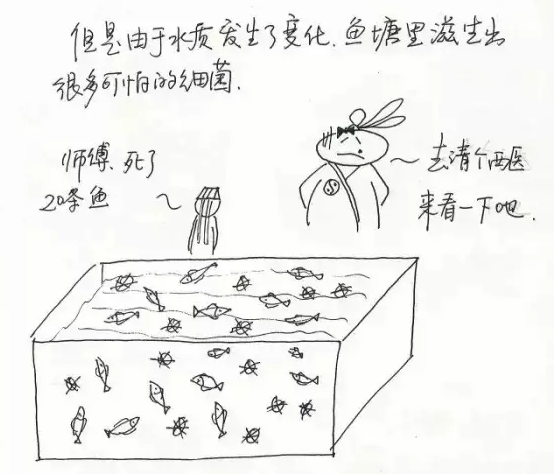 但是由于水质发生了变化.鱼塘里滋生出
很多可怕的细菌.
师缚.死了
20条鱼
去请个西医
来看一下吧.